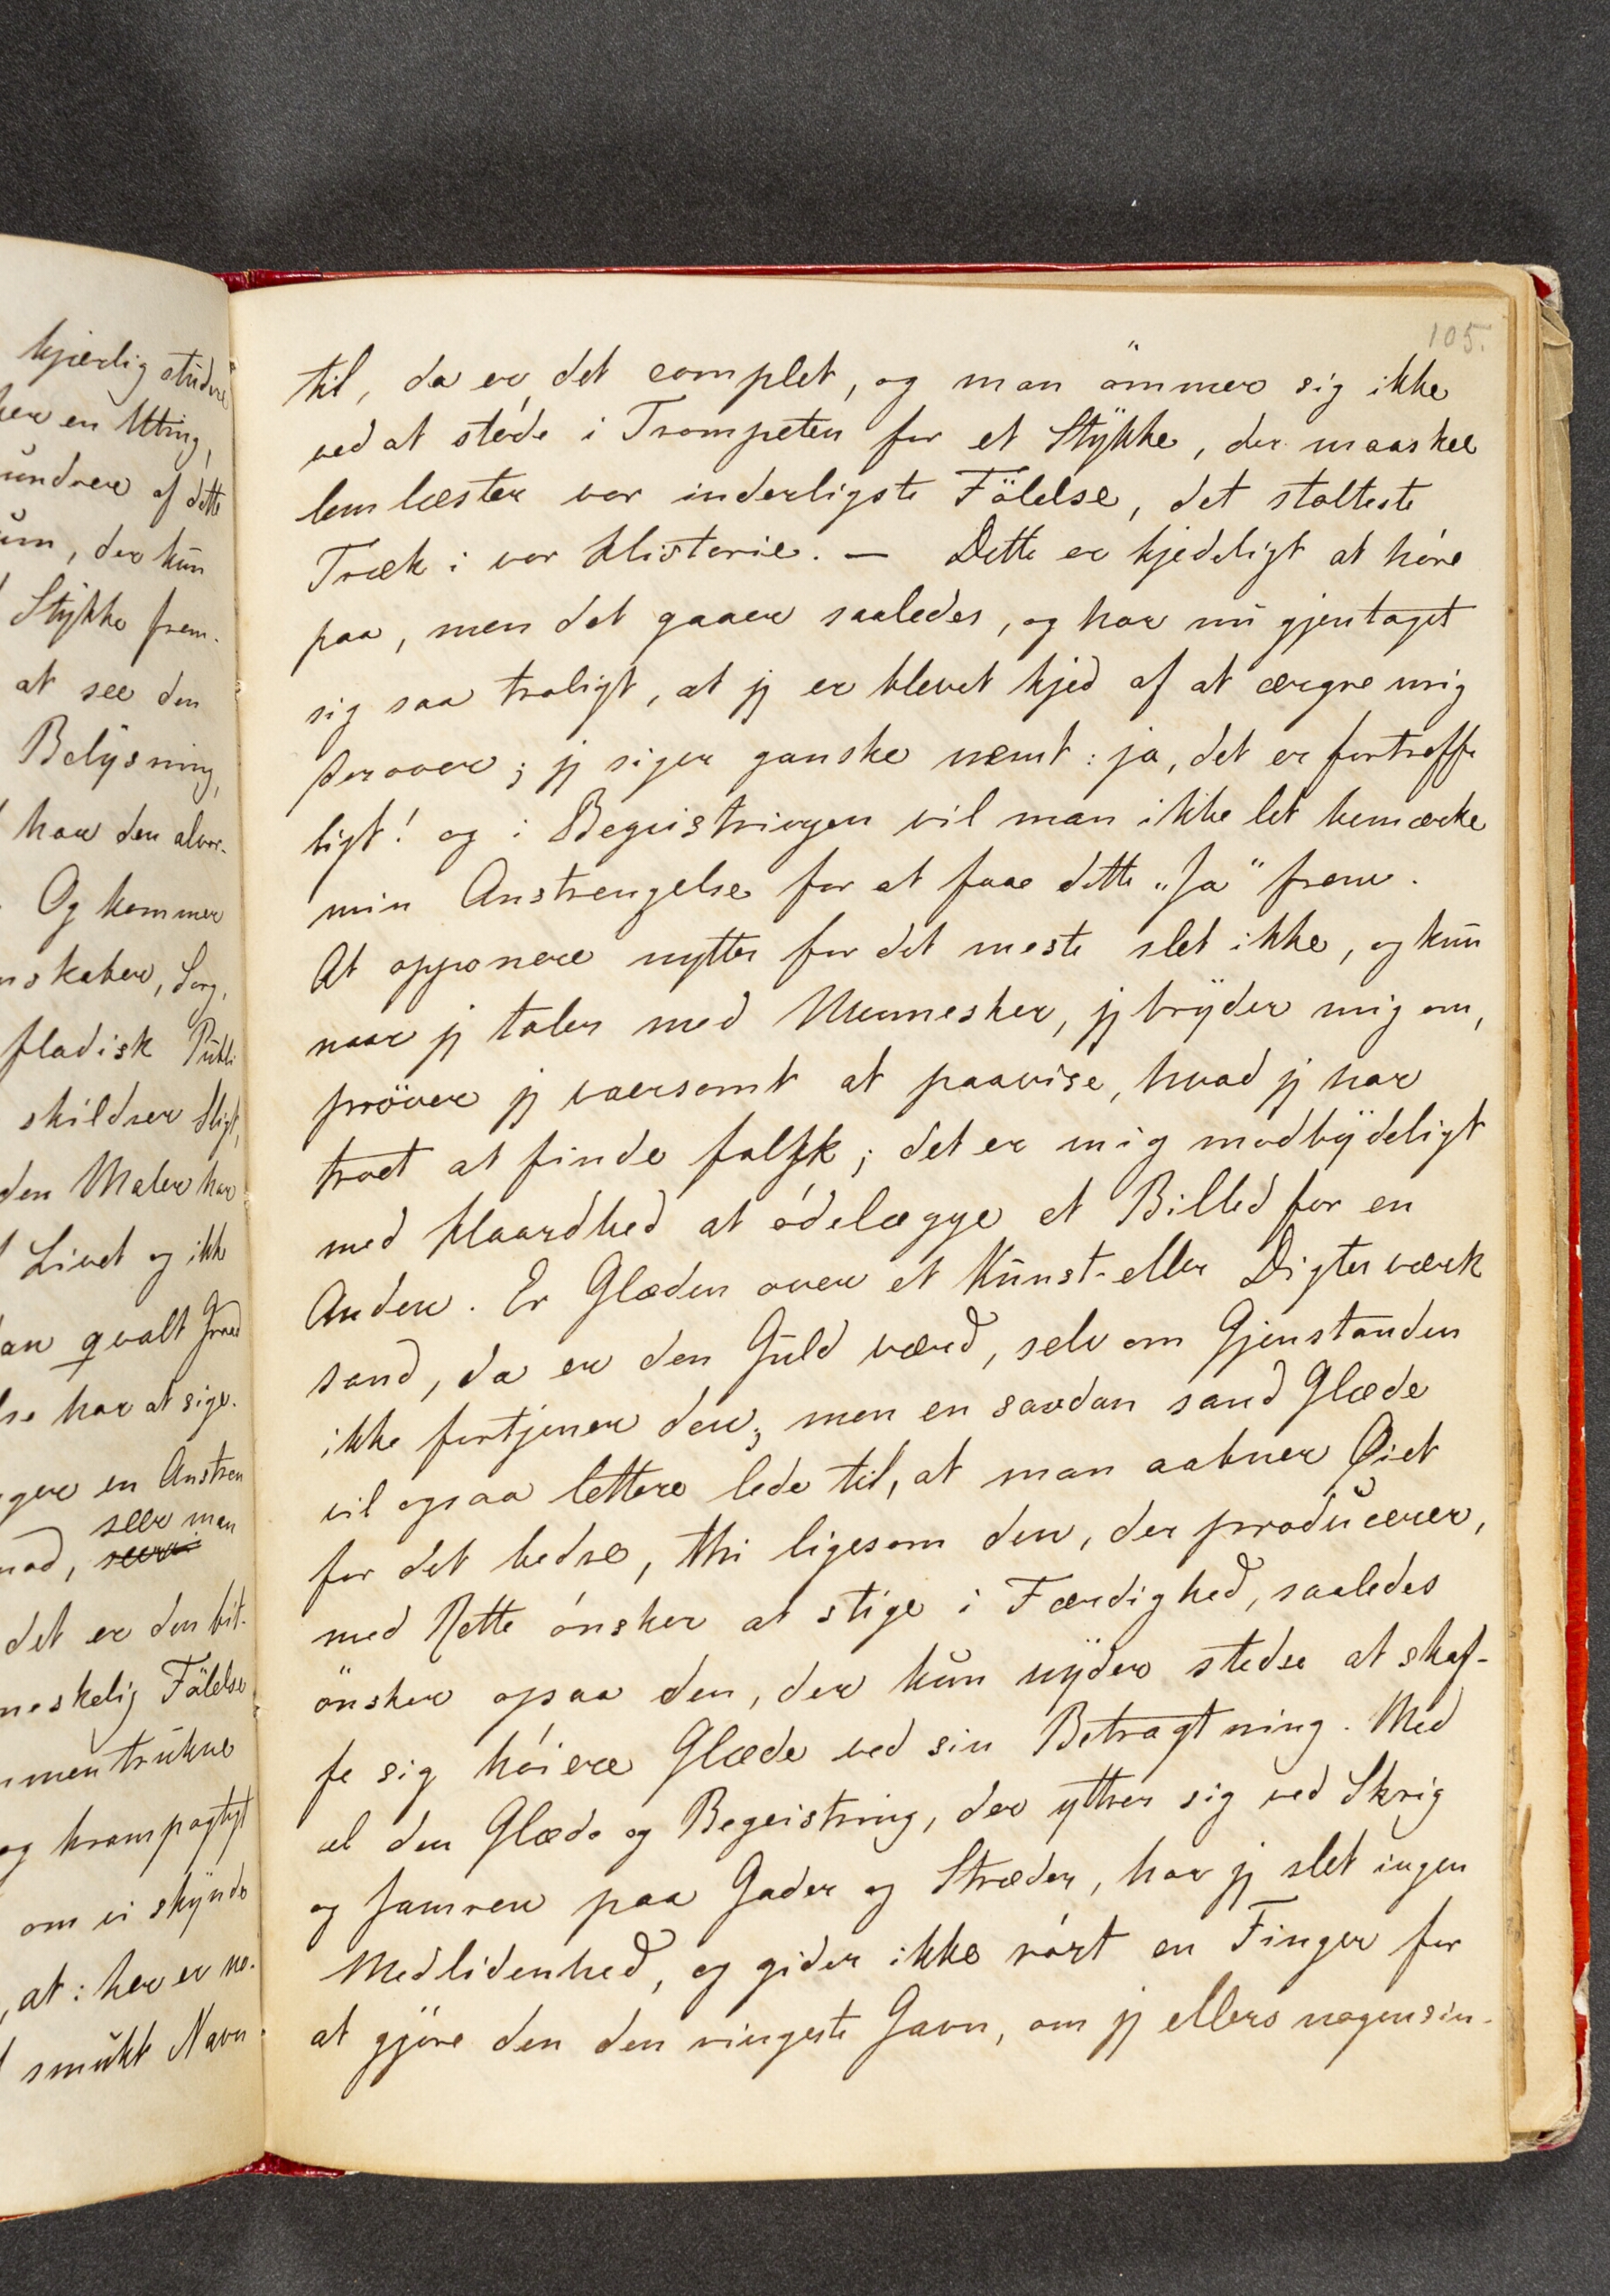 kjærlig studere
her en Yttring,
undrere af dette
um, der kun
Stykke frem-
at see den
Belysning,
har den alvor-
Og kommer
nskaber, Sorg,
fladisk Publi
skildrer Sligt,
den Maler har
Livet og ikke
an qvalt Graad
lse har at sige.
ger en Anstren
seer man
nad, seer vi
det er den bit-
neskelig Fölelse
mmentrukne
og krampagtigt
om vi skynde
, at: her er no-
smukt Navn
105.
til, da er det complet, og man ömmer sig ikke
ved at støde i Trompeten for et Stykke, der maaskee
lemlæster vor inderligste Fölelse, det stolteste
Træk i vor Historie. — Dette er kjedeligt at høre
paa, men det gaaer saaledes, og har nu gjentaget
sig saa troligt, at jeg er blevet kjed af at ærgre mig
derover; jeg siger ganske nemt: ja, det er fortræffe
ligt! og i Begeistringen vil man ikke let bemærke
min Anstrengelse for at faae dette „Ja“ frem.
At opponere nytter for det meste slet ikke, og kun
naar jeg taler med Mennesker, jeg bryder mig om,
pröver jeg varsomt at paavise, hvad jeg har
troet at finde falsk; det er mig modbydeligt
med Haardhed at ødelægge et Billed for en
Anden. Er Glæden over et Kunst- eller Digterværk
sand, da er den Guld værd, selv om Gjenstanden
ikke fortjener den; men en saadan sand Glæde
vil ogsaa lettere lede til, at man aabner Øiet
for det bedre, thi ligesom den, der producerer,
med Rette ønsker at stige i Færdighed, saaledes
önsker ogsaa den, der kun nyder stedse at skaf-
fe sig høiere Glæde ved sin Betragtning. Med
al den Glæde og Begeistring, der yttrer sig ved Skrig
og Jamren paa Gader og Stræder, har jeg slet ingen
Medlidenhed, og gider ikke rørt en Finger for
at gjøre den den ringeste Gavn, om jeg ellers nogensin-